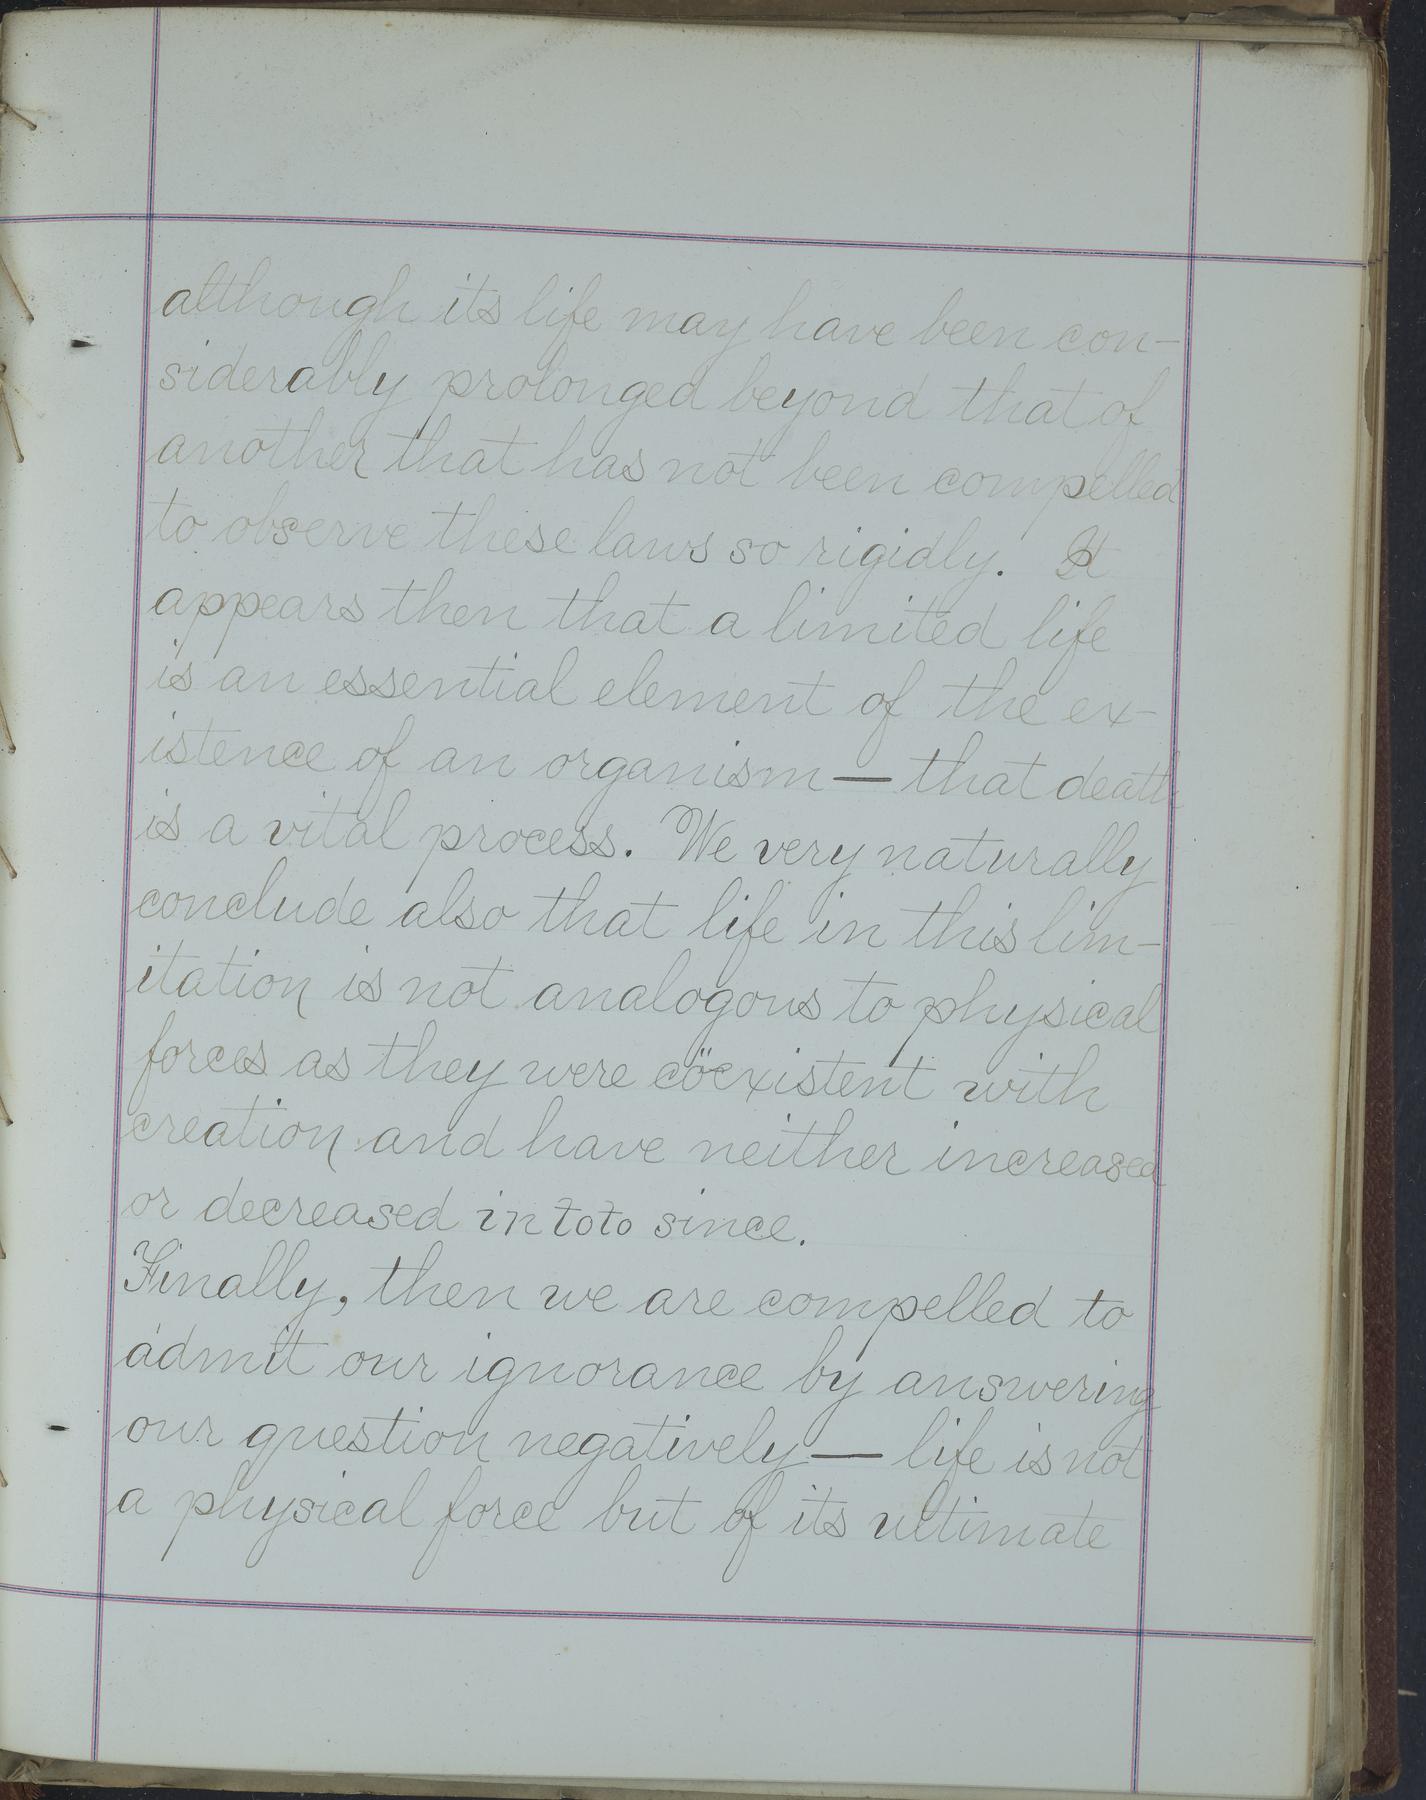 although its life may have been con-
siderably prolonged beyond that of
another that has not been compelled
to observe these laws so rigidly. It
appears then that a limited life
is an essential element of the ex-
istence of an organism — that death
is a vital process. We very naturally
conclude also that life in this lim-
itation is not analogous to physical
forces as they were cöexistent with
creation and have neither increased
or decreased in toto since.
Finally, then we are compelled to
admit our ignorance by answering
our question negatively — life is not
a physical force but of its ultimate